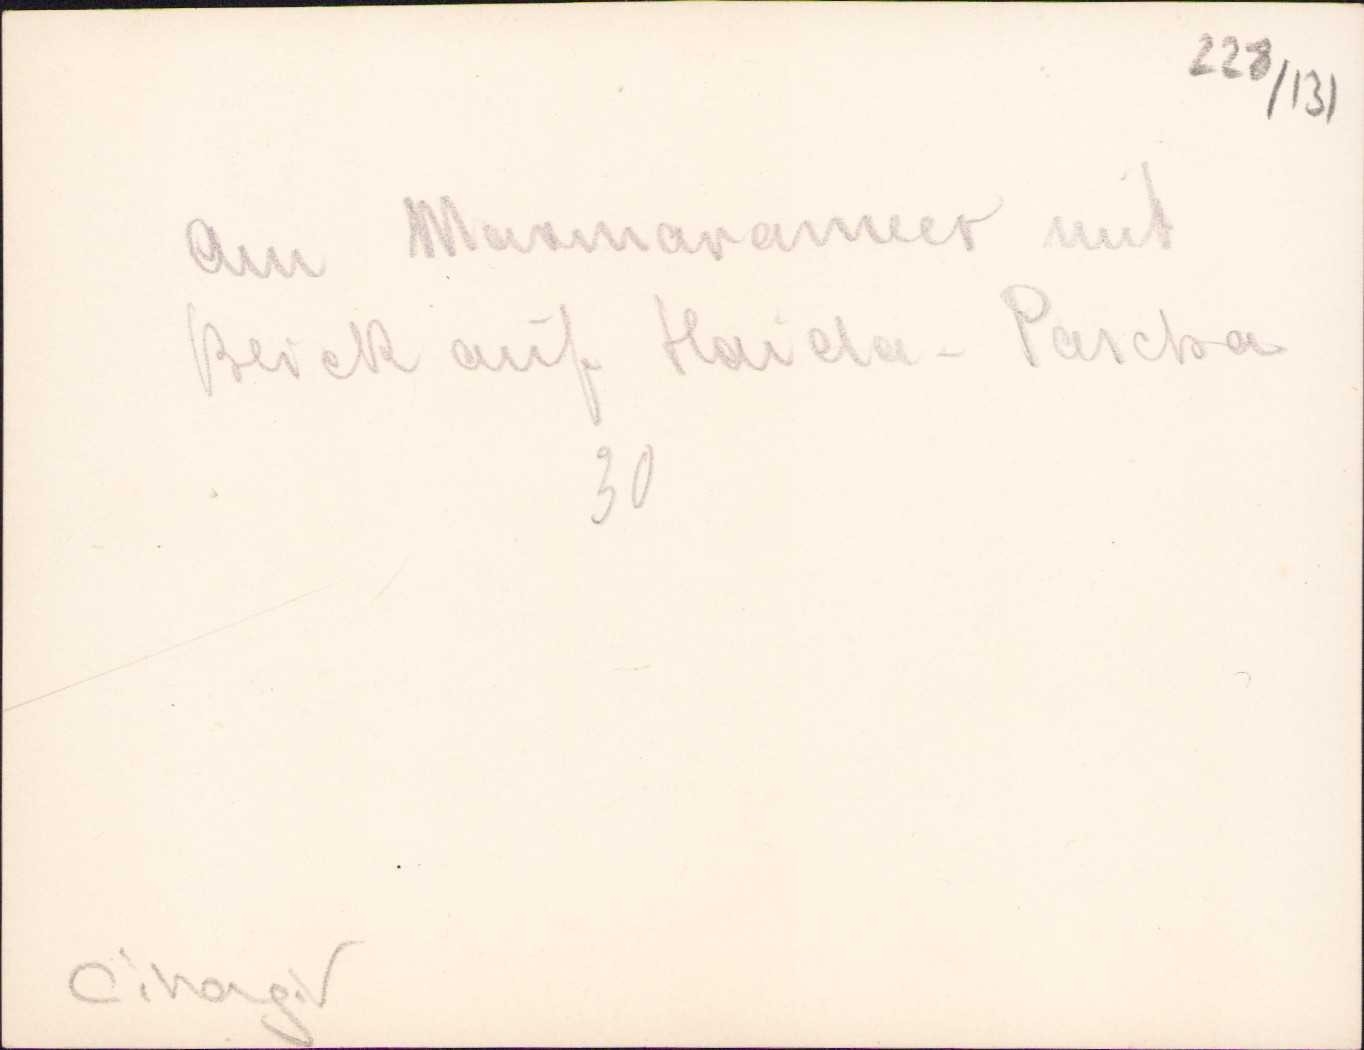 228/131
Am Marmarameer mit
Blick auf Haida-Pascha
30
Cihangir